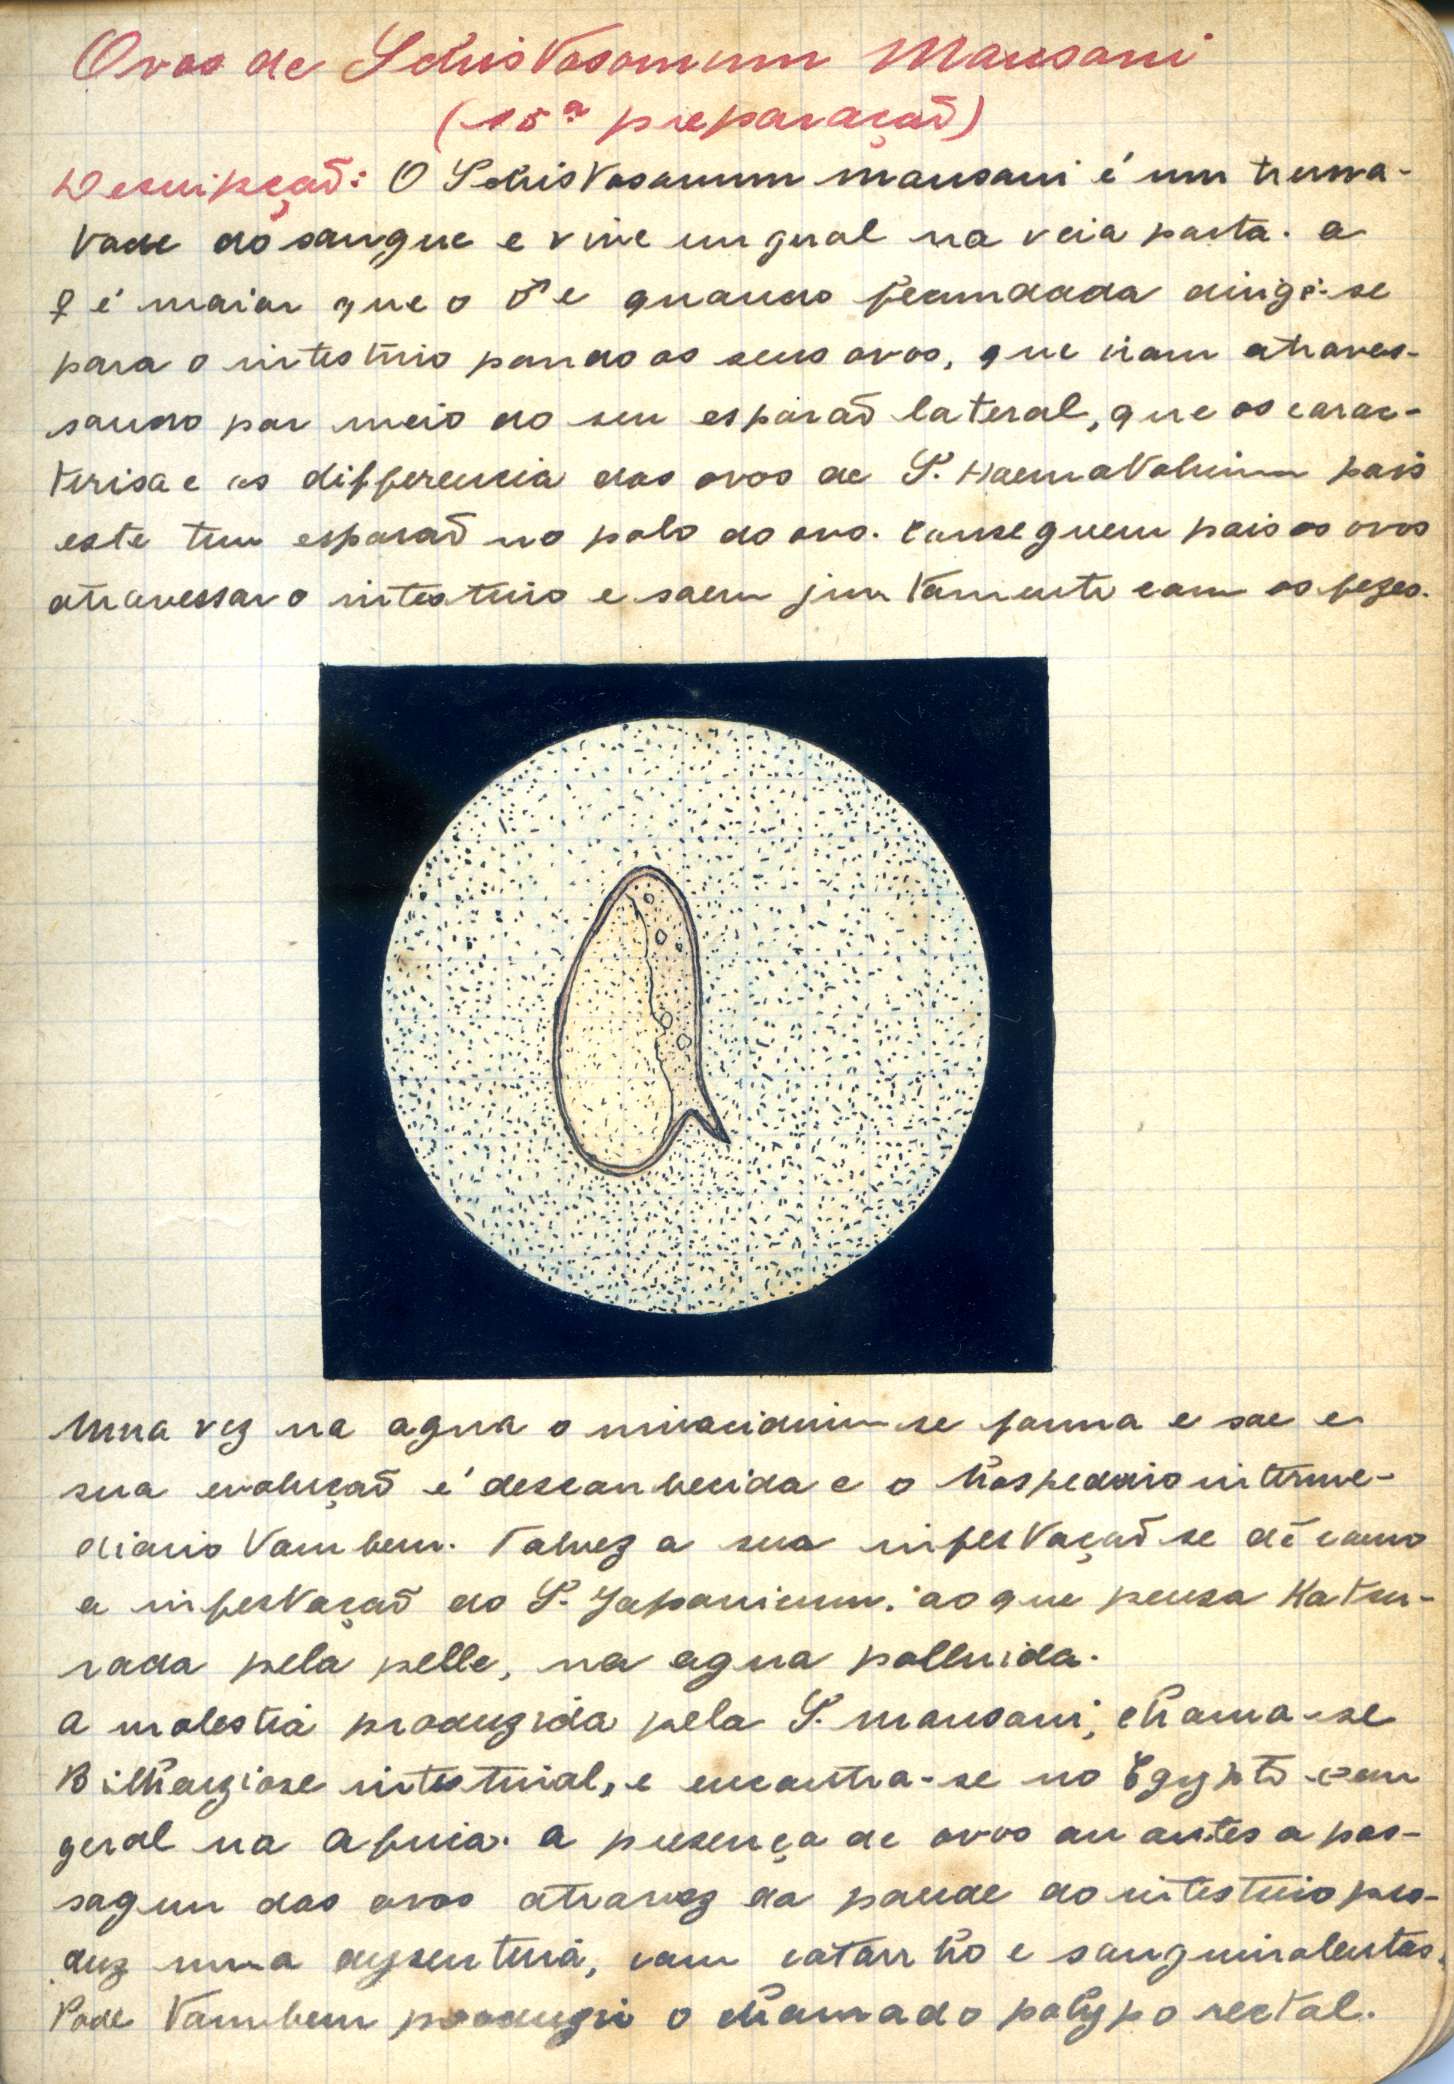 Ovos de Schistosomum Mansoni
(15ª preparação)
Descripção: O Schistosomum mansoni é um trema-
tode do sangue e vive em geral na veia porta. a
♀ é maior que o ♂ e quando fecundada dirige-se
para o intestino pondo os seus ovos, que viam atraves-
sando por meio do seu esporão lateral, que os carac-
terisa e os differencia dos ovos de S. Haematobium pois
este tem esporão no polo do ovo. Conseguem pois os ovos
atravessar o intestino e saem juntamente com as fezes.
Uma vez na agua o miracidium se forma e sae e
sua evolução é desconhecida e o hospedeiro interme-
diario tambem. Talvez a sua infestação se dê como
a infestação do S. Japonicum. ao que pensa Katsu-
rada pela pelle, na agua polluida.
A molestia produzida pela S. mansoni, chama-se
Bilharziose intestinal, e encontra-se no Egypto e em
geral na Africa. A presença de ovos ou antes a pas-
sagem dos ovos atravez da parede do intestino pro-
duz uma dysenteria, com catarrho e sanguinolentas.
Pode tambem produzir o chamado polypo rectal.